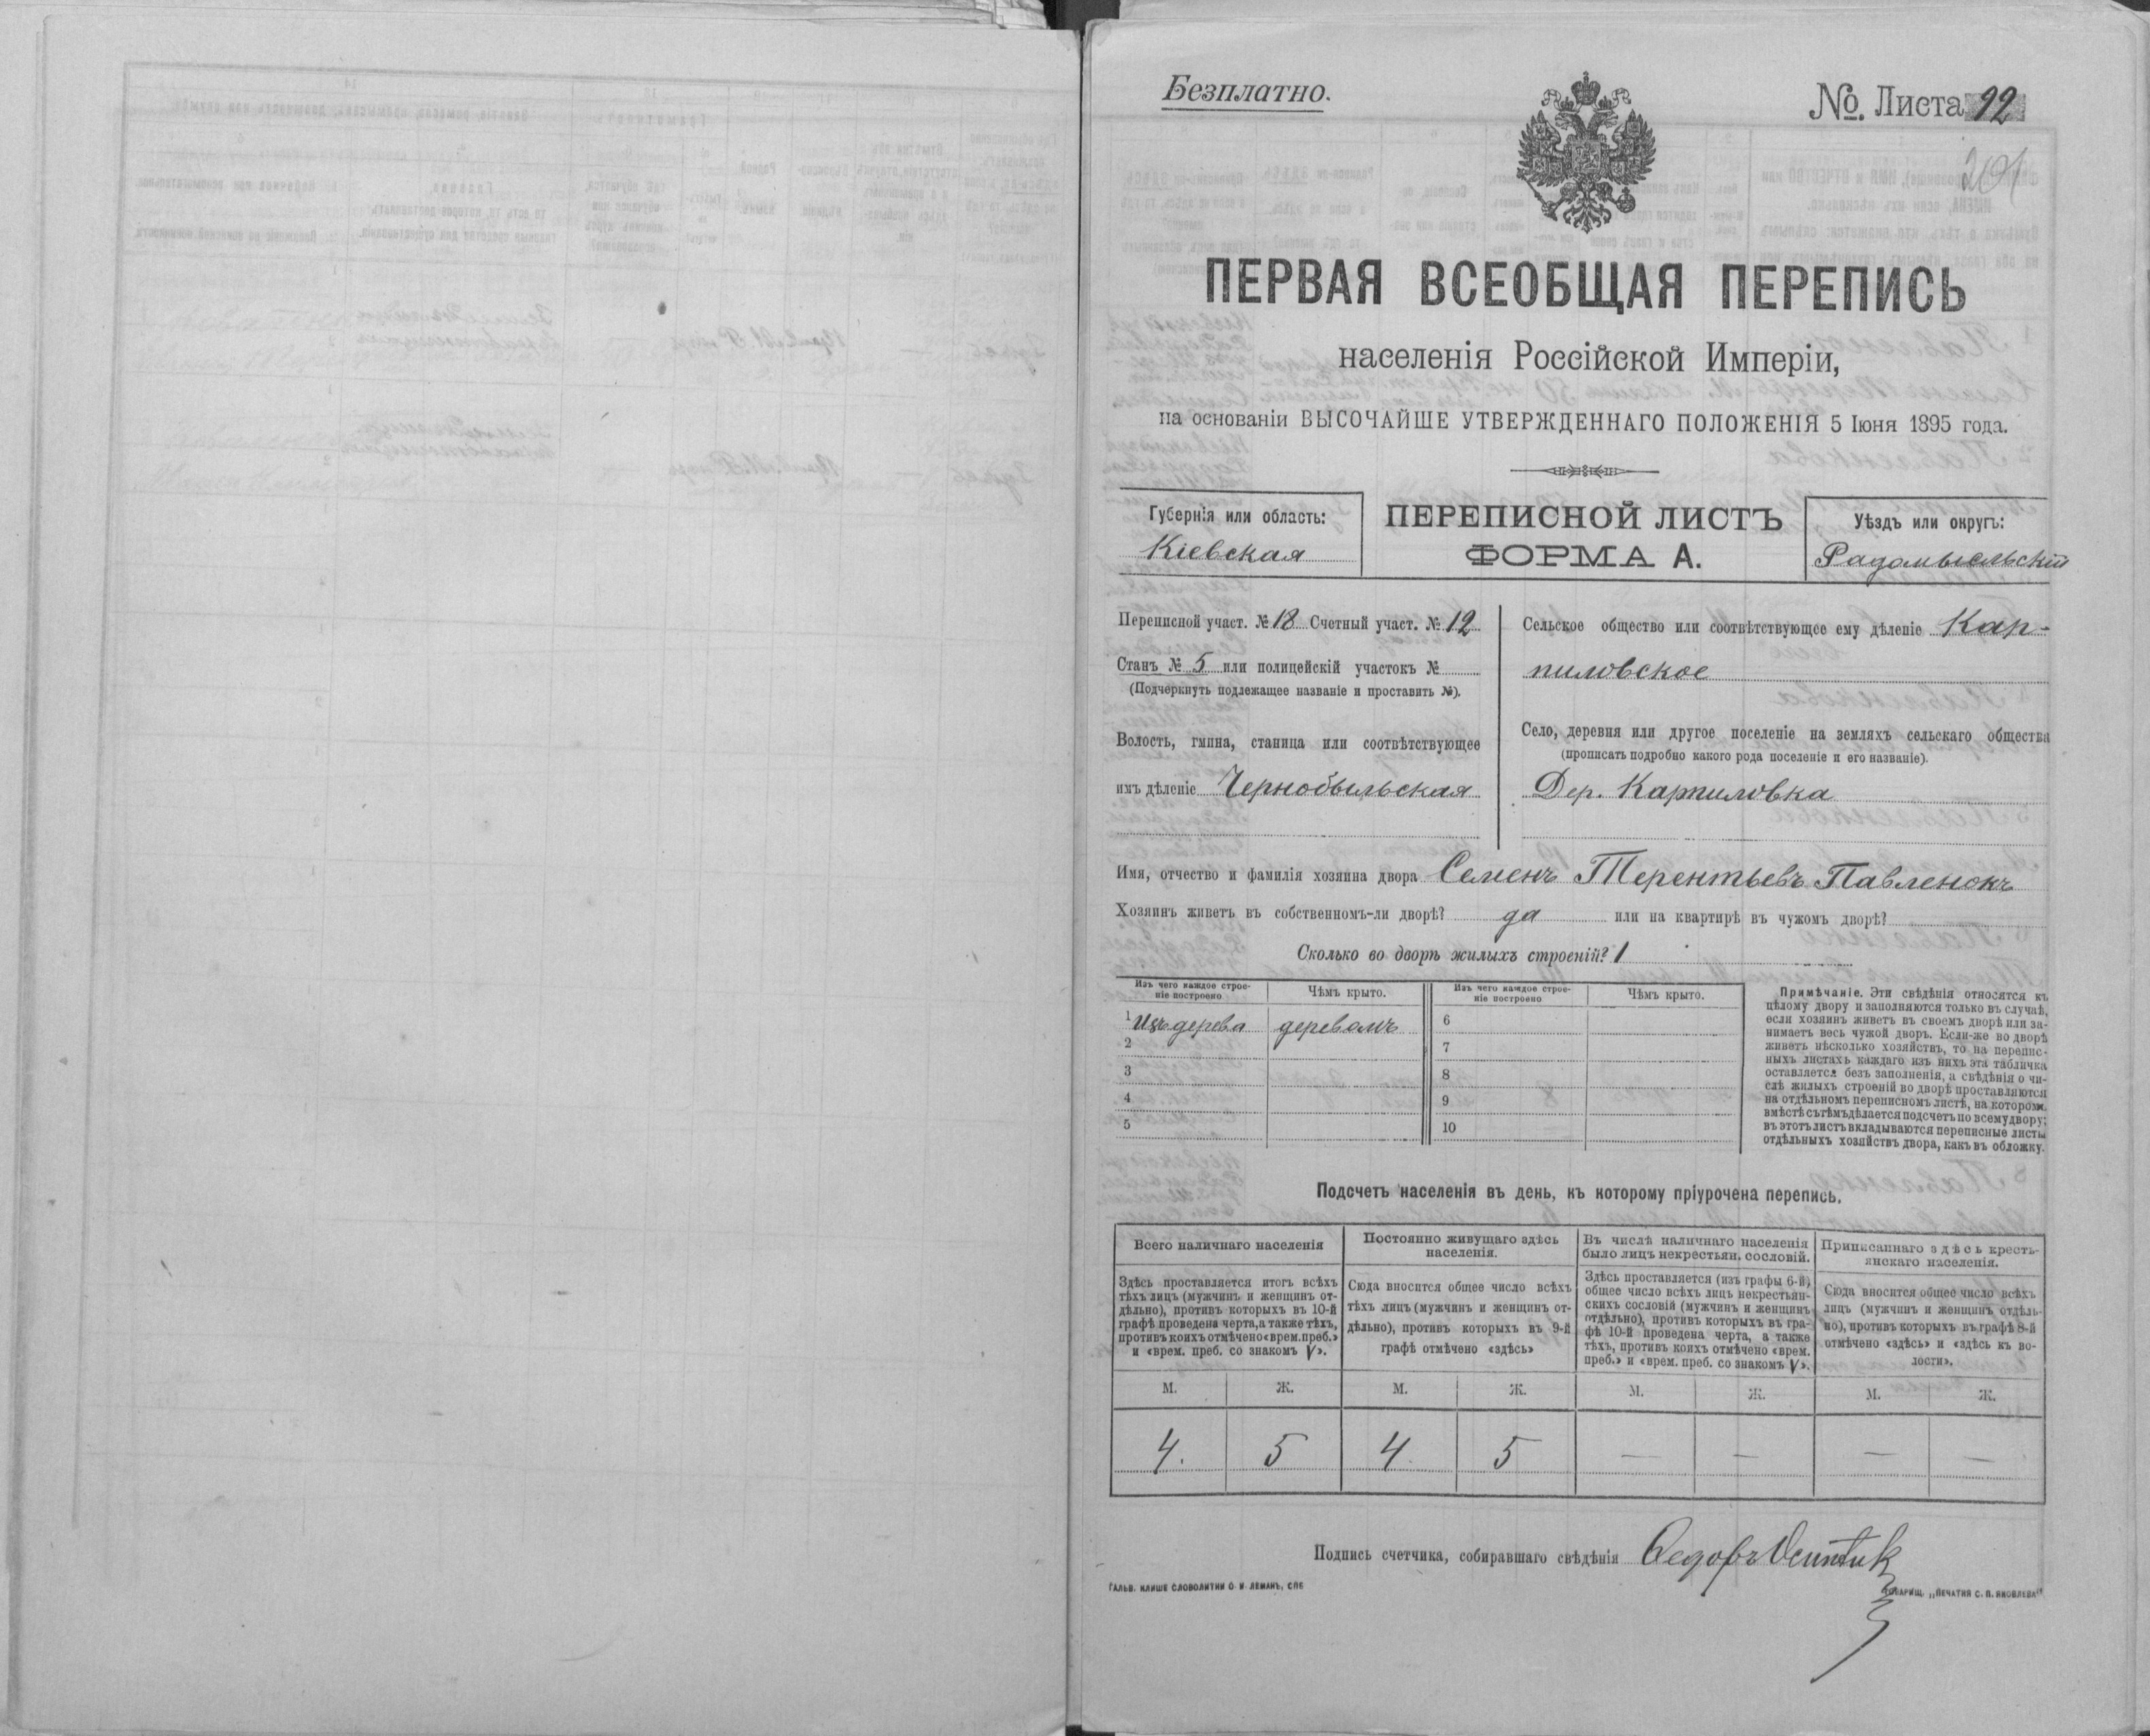 Безплатно.
№ Листа 92
201
ПЕРВАЯ ВСЕОБЩАЯ ПЕРЕПИСЬ
населенія Россійской Имперіи,
на основаніи ВЫСОЧАЙШЕ УТВЕРЖДЕННАГО ПОЛОЖЕНІЯ 5 Іюня 1895 года.
Губернія или область:
Кіевская
ПЕРЕПИСНОЙ ЛИСТЪ
ФОРМА А.
Уѣздъ или округъ:
Радомысльскій
Переписной участ. № 18 Счетный участ. № 12
Станъ № 5 или полицейскій участокъ №
(Подчеркнуть подлежащее названіе и проставить №).
Волость, гмина, станица или соотвѣтствующее
имъ дѣленіе Чернобыльская
Сельское общество или соотвѣтствующее ему дѣленіе Кар-
пиловское
Село, деревня или другое поселеніе на земляхъ сельскаго общества
(прописать подробно какого рода поселеніе и его названіе).
Дер. Карпиловка
Имя, отчество и фамилія хозяина двора Семенъ Терентьевъ Павленокъ
Хозяинъ живетъ въ собственномъ-ли дворѣ? да или на квартирѣ въ чужомъ дворѣ?
Сколько во дворѣ жилыхъ строеній? 1
Изъ чего каждое строе-
ніе построено
Чѣмъ крыто.
Изъ чего каждое строе-
ніе построено
Чѣмъ крыто.
1 Изъ дерева деревомъ 6
2 7
3 8
4 9
5 10
Примѣчаніе. Эти свѣдѣнія относятся къ
цѣлому двору и заполняются только въ случаѣ,
если хозяинъ живетъ въ своемъ дворѣ или за-
нимаетъ весь чужой дворъ. Если-же во дворѣ
живетъ нѣсколько хозяйствъ, то на перепис-
ныхъ листахъ каждаго изъ нихъ эта табличка
оставляется безъ заполненія, а свѣдѣнія о чи-
слѣ жилыхъ строеній во дворѣ проставляются
на отдѣльномъ переписномъ листѣ, на которомъ
вмѣстѣ съ тѣмъ дѣлается подсчетъ по всему двору;
въ этотъ листъ вкладываются переписные листы
отдѣльныхъ хозяйствъ двора, какъ въ обложку.
Подсчетъ населенія въ день, къ которому пріурочена перепись.
Всего наличнаго населенія
Здѣсь проставляется итогъ всѣхъ
тѣхъ лицъ (мужчинъ и женщинъ от-
дѣльно), противъ которыхъ въ 10-й
графѣ проведена черта, а также тѣхъ,
противъ коихъ отмѣчено «врем. преб.»
и «врем. преб. со знакомъ V».
Постоянно живущаго здѣсь
населенія.
Сюда вносится общее число всѣхъ
тѣхъ лицъ (мужчинъ и женщинъ от-
дѣльно), противъ которыхъ въ 9-й
графѣ отмѣчено «здѣсь»
Въ числѣ наличнаго населенія
было лицъ некрестьян. сословій.
Здѣсь проставляется (изъ графы 6-й)
общее число всѣхъ лицъ некрестьян-
скихъ сословій (мужчинъ и женщинъ
отдѣльно), противъ которыхъ въ гра-
фѣ 10-й проведена черта, а также
тѣхъ, противъ коихъ отмѣчено «врем.
преб.» и «врем. преб. со знакомъ V».
Приписаннаго здѣсь кресть-
янскаго населенія.
Сюда вносится общее число всѣхъ
лицъ (мужчинъ и женщинъ отдѣль-
но), противъ которыхъ въ графѣ 8-й
отмѣчено «здѣсь» и «здѣсь къ во-
лости».
М. Ж. М. Ж. М. Ж. М. Ж.
4. 5 4 5 — — — —
Подпись счетчика, собиравшаго свѣдѣнія Ѳедоръ
ГАЛЬВ. КЛИШЕ СЛОВОЛИТНИ О. И. ЛЕМАНЪ, СПБ
ТОВАРИЩ. „ПЕЧАТНЯ С. П. ЯКОВЛЕВА"